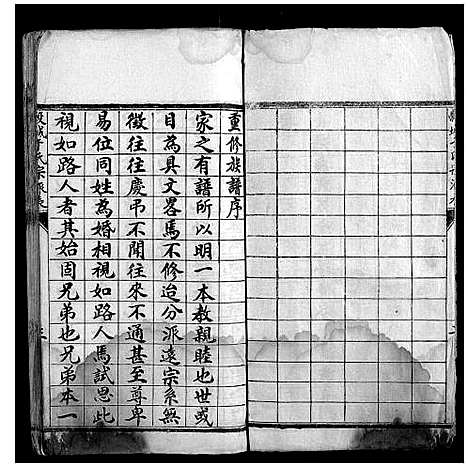 重修族譜序
家之有譜所以明一本敦親睦也世或
目為具文畧焉不修迨分派遠宗系無
徵往往慶弔不聞往來不通甚至尊卑
易位同姓為婚相視如路人焉試思此
視如路人者其始固兄弟也兄弟本一